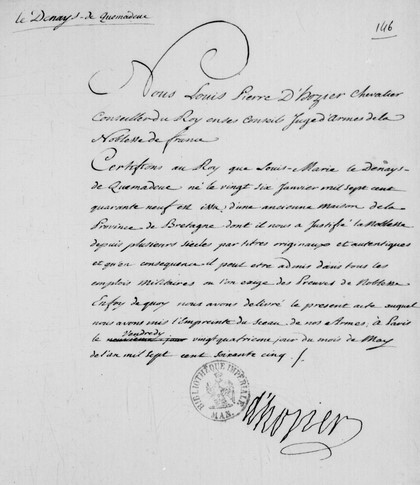 le Denays-de Quemadeuc
146
Nous Louis Pierre D'hozier Chevalier
Conseiller du Roy en ses Conseils Juge d'Armes de la
Noblesse de france
Certifions au Roy que Louis-Marie le Denays-
de Quemadeuc né le vingt six Janvier mil sept cent
quarante neuf est issu d'une ancienne maison de la
Province de Bretagne dont il nous a Justifié la Noblesse
depuis plusieurs siecles par titres originaux et autentiques
et qu'en consequence il peut etre admis dans tous les
emplois militaires ou l'on exige des Preuves de Noblesse
Enfoy de quoy nous avons delivré le present acte auquel
nous avons mis l'Empreinte du Sceau de nos Armes, à Paris
Vendredy
le vingtquatrieme jour du mois de May
de l'an mil sept cent soixante cinq /.
BIBLIOTHÈQUE IMPÉRIALE
MAN.
d'hozier